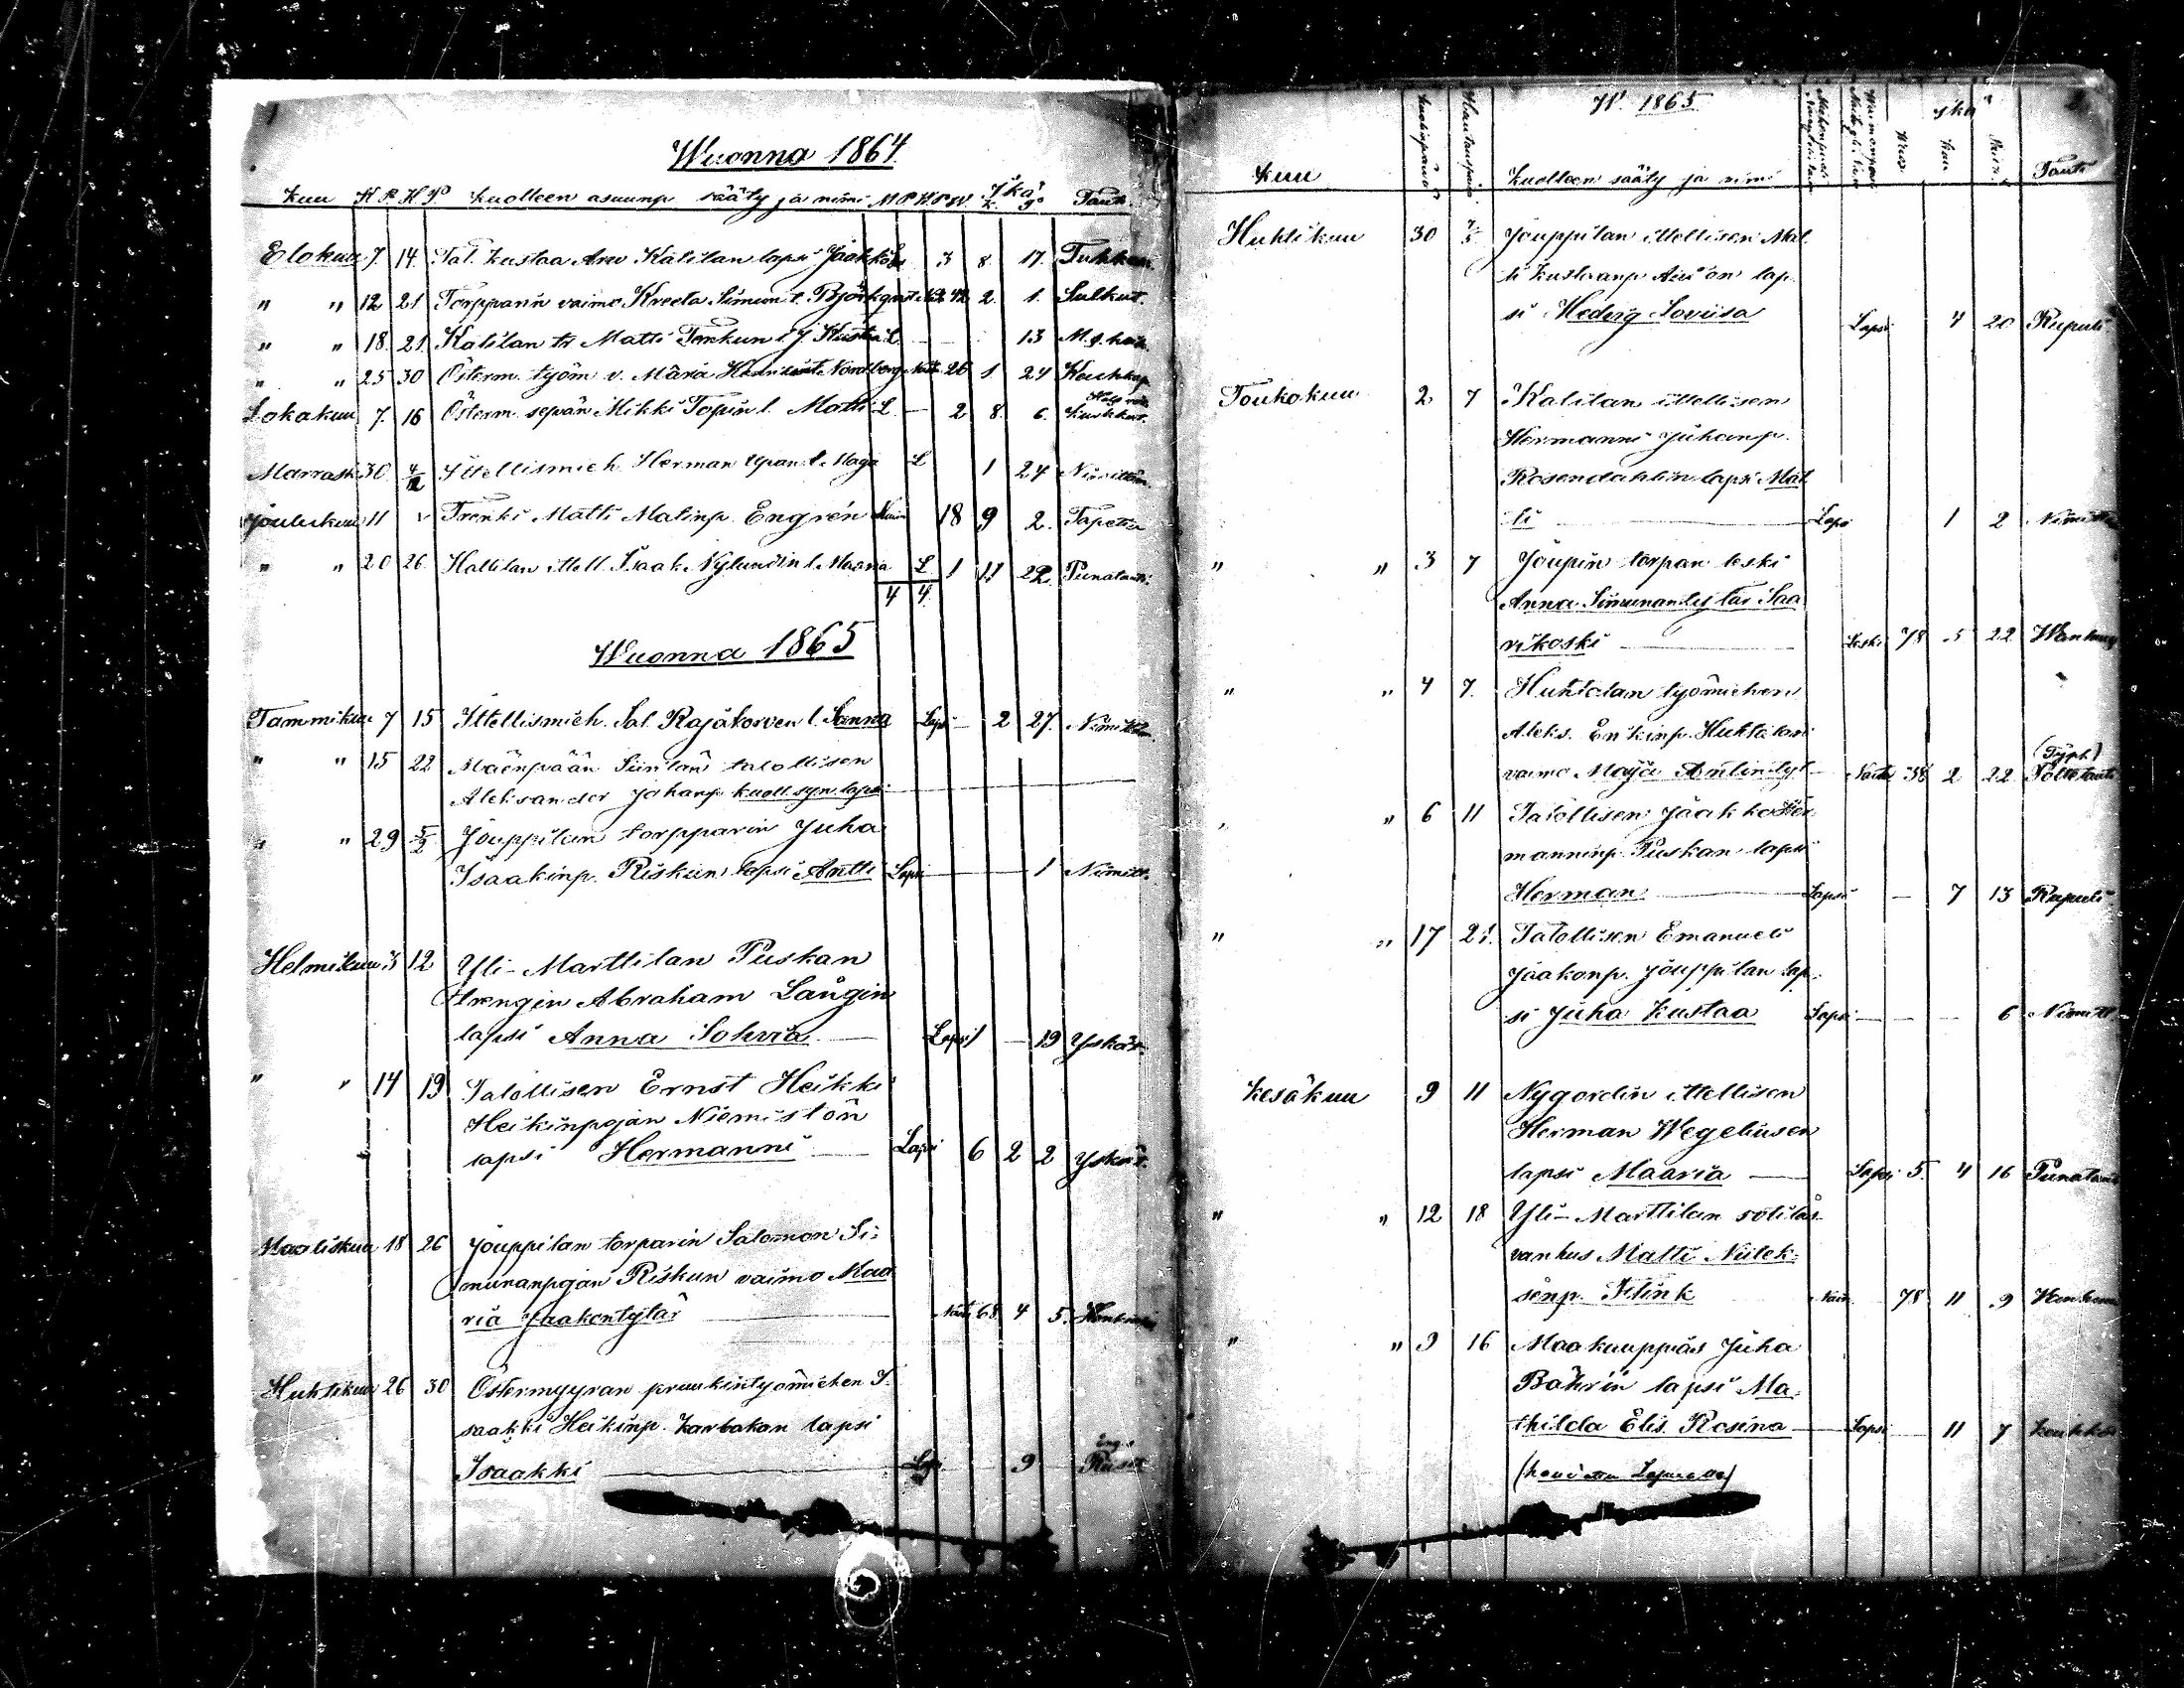 Wuonna 1864
Kuu K P H P Kuolleen asuinp sääty ja nimi M P W P W. Ikä K. P. Tauti
Elokuu 7. 14. Tal. Kustaa Arw Katilan lapsi Jaakko 3 8. 17. Tuhkar.
" " 12 21 Torpparin vaimo Kreeta Simun t. Björkqvist 42 2. 1. Sulkut.
" " 18. 21. Katilan tr Matti J. Kustaa L. — 13
" " 25 30 Österm. työm v. Maria Nordberg 26 1. 24
Lokakuu 7. 16 Österm. sepän Mikki Topin l. Matti L — 2 8. 6.
Marrask. 30 4/12 Ittellismieh. Herman l. Maja L 1 24 Nimitön.
Joulukuu 11 Trenki Matti Matinp. Engrén 18 9 2. Tapettu
" " 20 26 Hallilan ittell. Isaak Nylundin l. Maaria L 1 11 22. Punataut.
4 4
Wuonna 1865
Tammikuu 7 15 Ittellismieh. Sal. Rajakorven l. Sanna Lapsi — 2 27. Nimitön
" " 15 22 Mäenpään talollisen
Aleksander Johanp kuoll. syn. lapsi
" " 29 5/2 Jouppilan torpparin Juha
Isaakinp. Riskun lapsi Antti Lapsi — 1 Nimitt.
Helmikuu 3 12 Yli-Marttilan Puskan
trengin Abraham Långin
lapsi Anna Sohvia — Lapsi — 19 Yskät.
" " 14 19 Talollisen Ernst Heikki
Heikinpojan Niemistön
lapsi Hermanni — Lapsi 6 2 2 Yskät.
Maaliskuu 18 26 Jouppilan torparin Salomon Si-
munanpojan Riskun vaimo Maa
ria Jaakontytär — 68 4 5.
Huhtikuu 26 30 Östermyyran pruukintyömiehen I-
saakki Heikinp. Karbakan lapsi
Isaakki — Lapsi 9
W. 1865
Kuu Kuolinpäivä Hautauspäivä Kuolleen sääty ja nimi Ikä Kuu Tauti
Huhtikuu 30 7/5 Jouppilan ittellisen Mat
ti Kustaanp lap
si Hedvig Loviisa Lapsi 4 20 Rupuli
Toukokuu 2 7 Katilan ittellisen
Hermanni Juhanp.
Rosendahlin lapsi Mat
ti — Lapsi 1 2 Nimittö
" " 3 7 Joupin torpan leski
Anna Simunantytär Saa
rikoski — Leski 78 5 22 Wanhuus
" " 4 7. Huhtalan työmiehen
Aleks. Erikinp. Huhtalan
vaimo Maja Antintyt — 38 2 22 (Typh) Polttotauti
" " 6 11 Talollisen Jaakko Her
manninp. Puskan lapsi
Herman — Lapsi — 7 13 Rupuli
" " 17 21. Talollisen Emanueli
Jaakonp. Jouppilan lap-
si Juha Kustaa Lapsi — 6 Nimitt
Kesäkuu 9 11 Nygordin ittellisen
Herman Wegeliusen
lapsi Maaria — Lapsi 5. 4 16 Punatauti
" " 12 18 Yli-Marttilan sotilas-
vanhus Matti
senp. Flink — 78 11 9
" " 9 16 Maakauppias Juha
lapsi Ma-
thilda Elis. Rosina — Lapsi 11 7